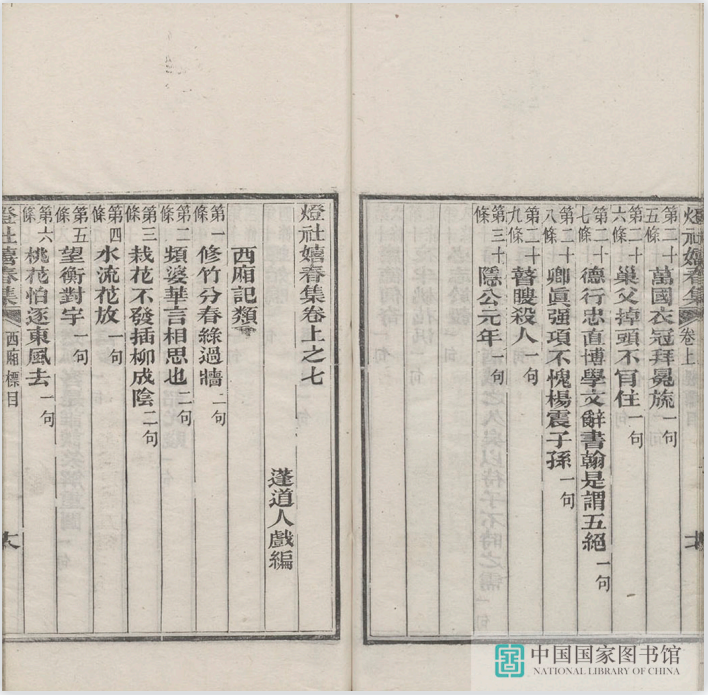 燈社嬉春集 卷上
第二十五條 萬國衣冠拜冕旒 一句
第二十六條 巢父掉頭不肎住 一句
第二十七條 德行忠直博學文辭書翰是謂五絕 一句
第二十八條 卿眞强項不愧楊震子孫 一句
第二十九條 瞽瞍殺人 一句
第三十條 隱公元年 一句
燈社嬉春集卷上之七
蓬道人戲編
西廂記類
第一條 修竹分春綠過牆 二句
第二條 頻婆華言相思也 二句
第三條 栽花不發插柳成陰 二句
第四條 水流花放 一句
第五條 望衡對宇 一句
第六條 桃花怕逐東風去 一句
燈社嬉春集 西廂標目
中国国家图书馆
NATIONAL LIBRARY OF CHINA